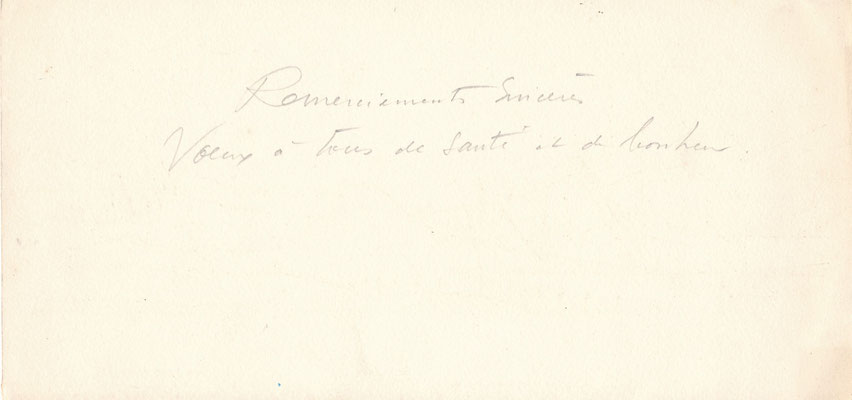 Remerciements Sincères
Voeux à tous de Santé et de bonheur.